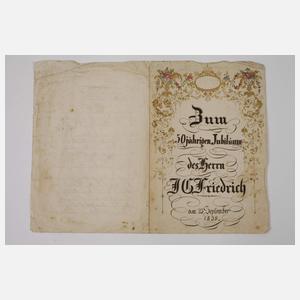 Zum
50jährigen Jubiläum
des Herrn
J G Friedrich
am September